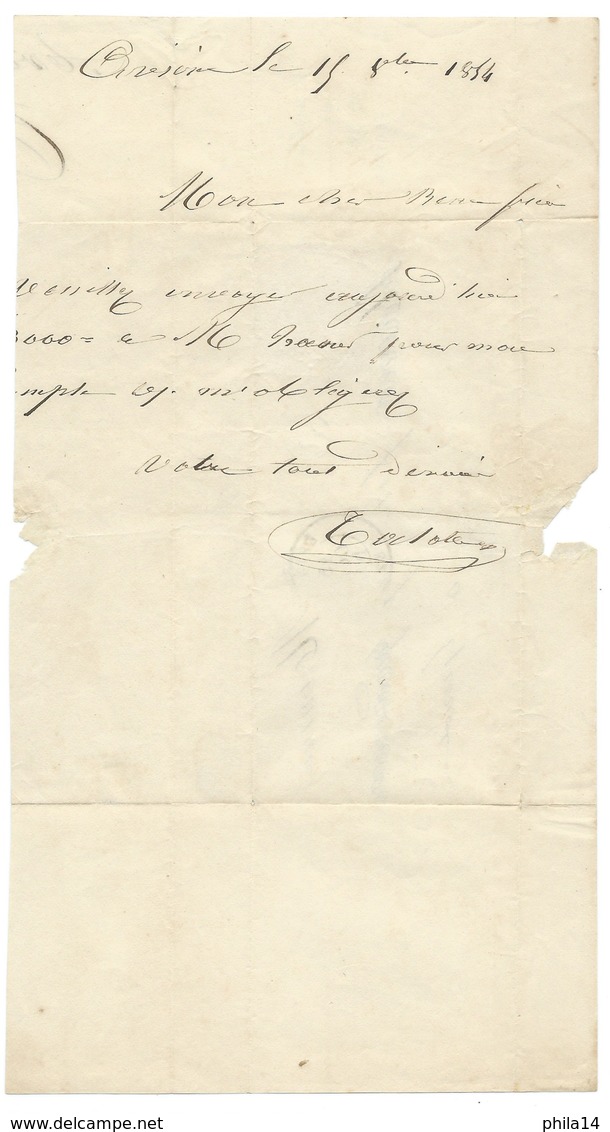 le 15 8bre 1854
Mon cher
Veuillez envoyer aujourd'hui
3000 = à M pour mon
compte et m'obligerez
Votre tout dévoué
www.delcampe.net
phila14